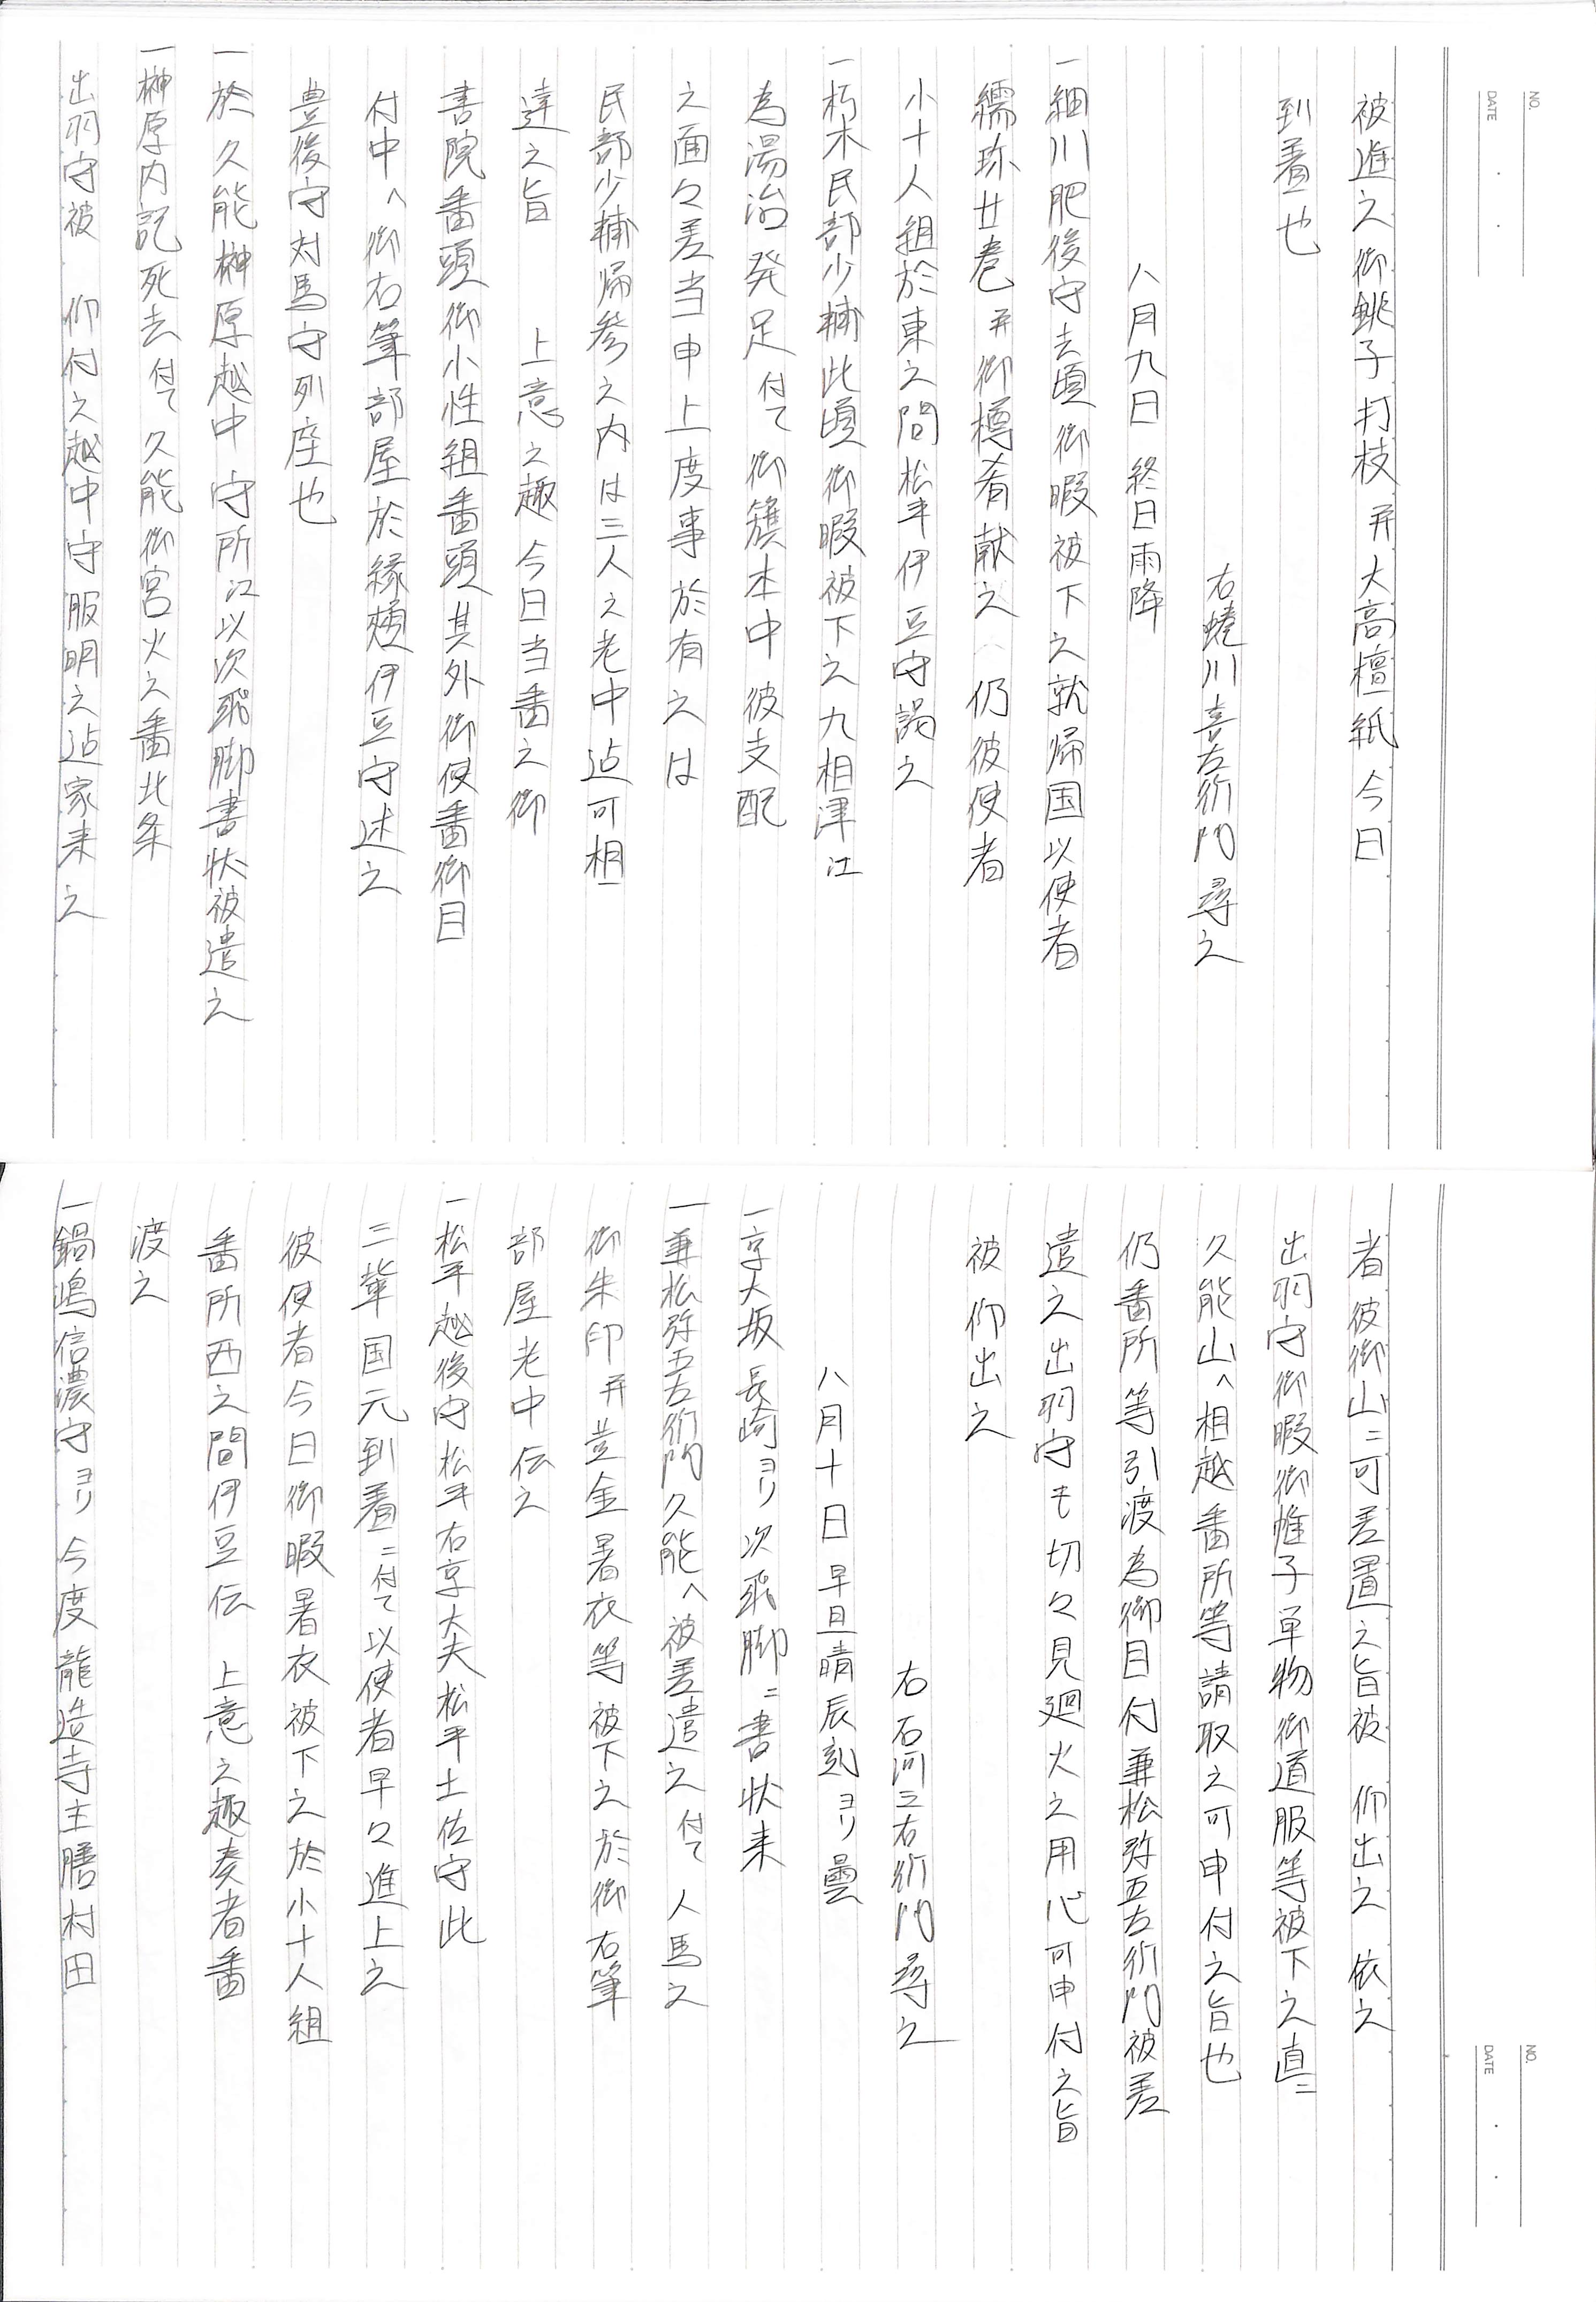 NO.
DATE
被進之御銚子打枝并大高檀紙今日
到着也
右蜷川喜左衛門尋之
八月九日 終日雨降
一細川肥後守去頃御暇被下之就帰国以使者
繻珍廿巻并御樽肴献之 仍彼使者
小十人組於東之間松平伊豆守謁之
一朽木民部少輔此頃御暇被下之九相津江
為湯治発足付て御籏本中彼支配
之面々差当申上度事於有之は
民部少輔帰参之内は三人之老中迠可相
達之旨 上意之趣今日当番之御
書院番頭御小性組番頭其外御使番御目
付中へ御右筆部屋於縁頬伊豆守述之
豊後守対馬守列座也
一於久能榊原越中守所江以次飛脚書状被遣之
一榊原内記死去付て久能御宮火之番北条
出羽守被 仰付之越中守服明之迠家来之
NO.
DATE
者彼御山ニ可差置之旨被 仰出之 依之
出羽守御暇御帷子単物御道服等被下之直ニ
久能山へ相越番所等請取之可申付之旨也
仍番所等引渡為御目付兼松弥五左衛門被差
遣之出羽守も切々見廻火之用心可申付之旨
被 仰出之
右石河三右衛門尋之
八月十日 早旦晴辰刻ヨリ曇
一京大坂長崎ヨリ次飛脚ニ書状来
一兼松弥五左衛門久能へ被差遣之付て人馬之
御朱印并並金暑衣等被下之於御右筆
部屋老中伝之
一松平越後守松平右京大夫松平土佐守此
二輩国元到着ニ付て以使者早々進上之
彼使者今日御暇暑衣被下之於小十人組
番所西之間伊豆伝 上意之趣奏者番
渡之
一鍋嶋信濃守ヨリ今度龍造寺主膳村田